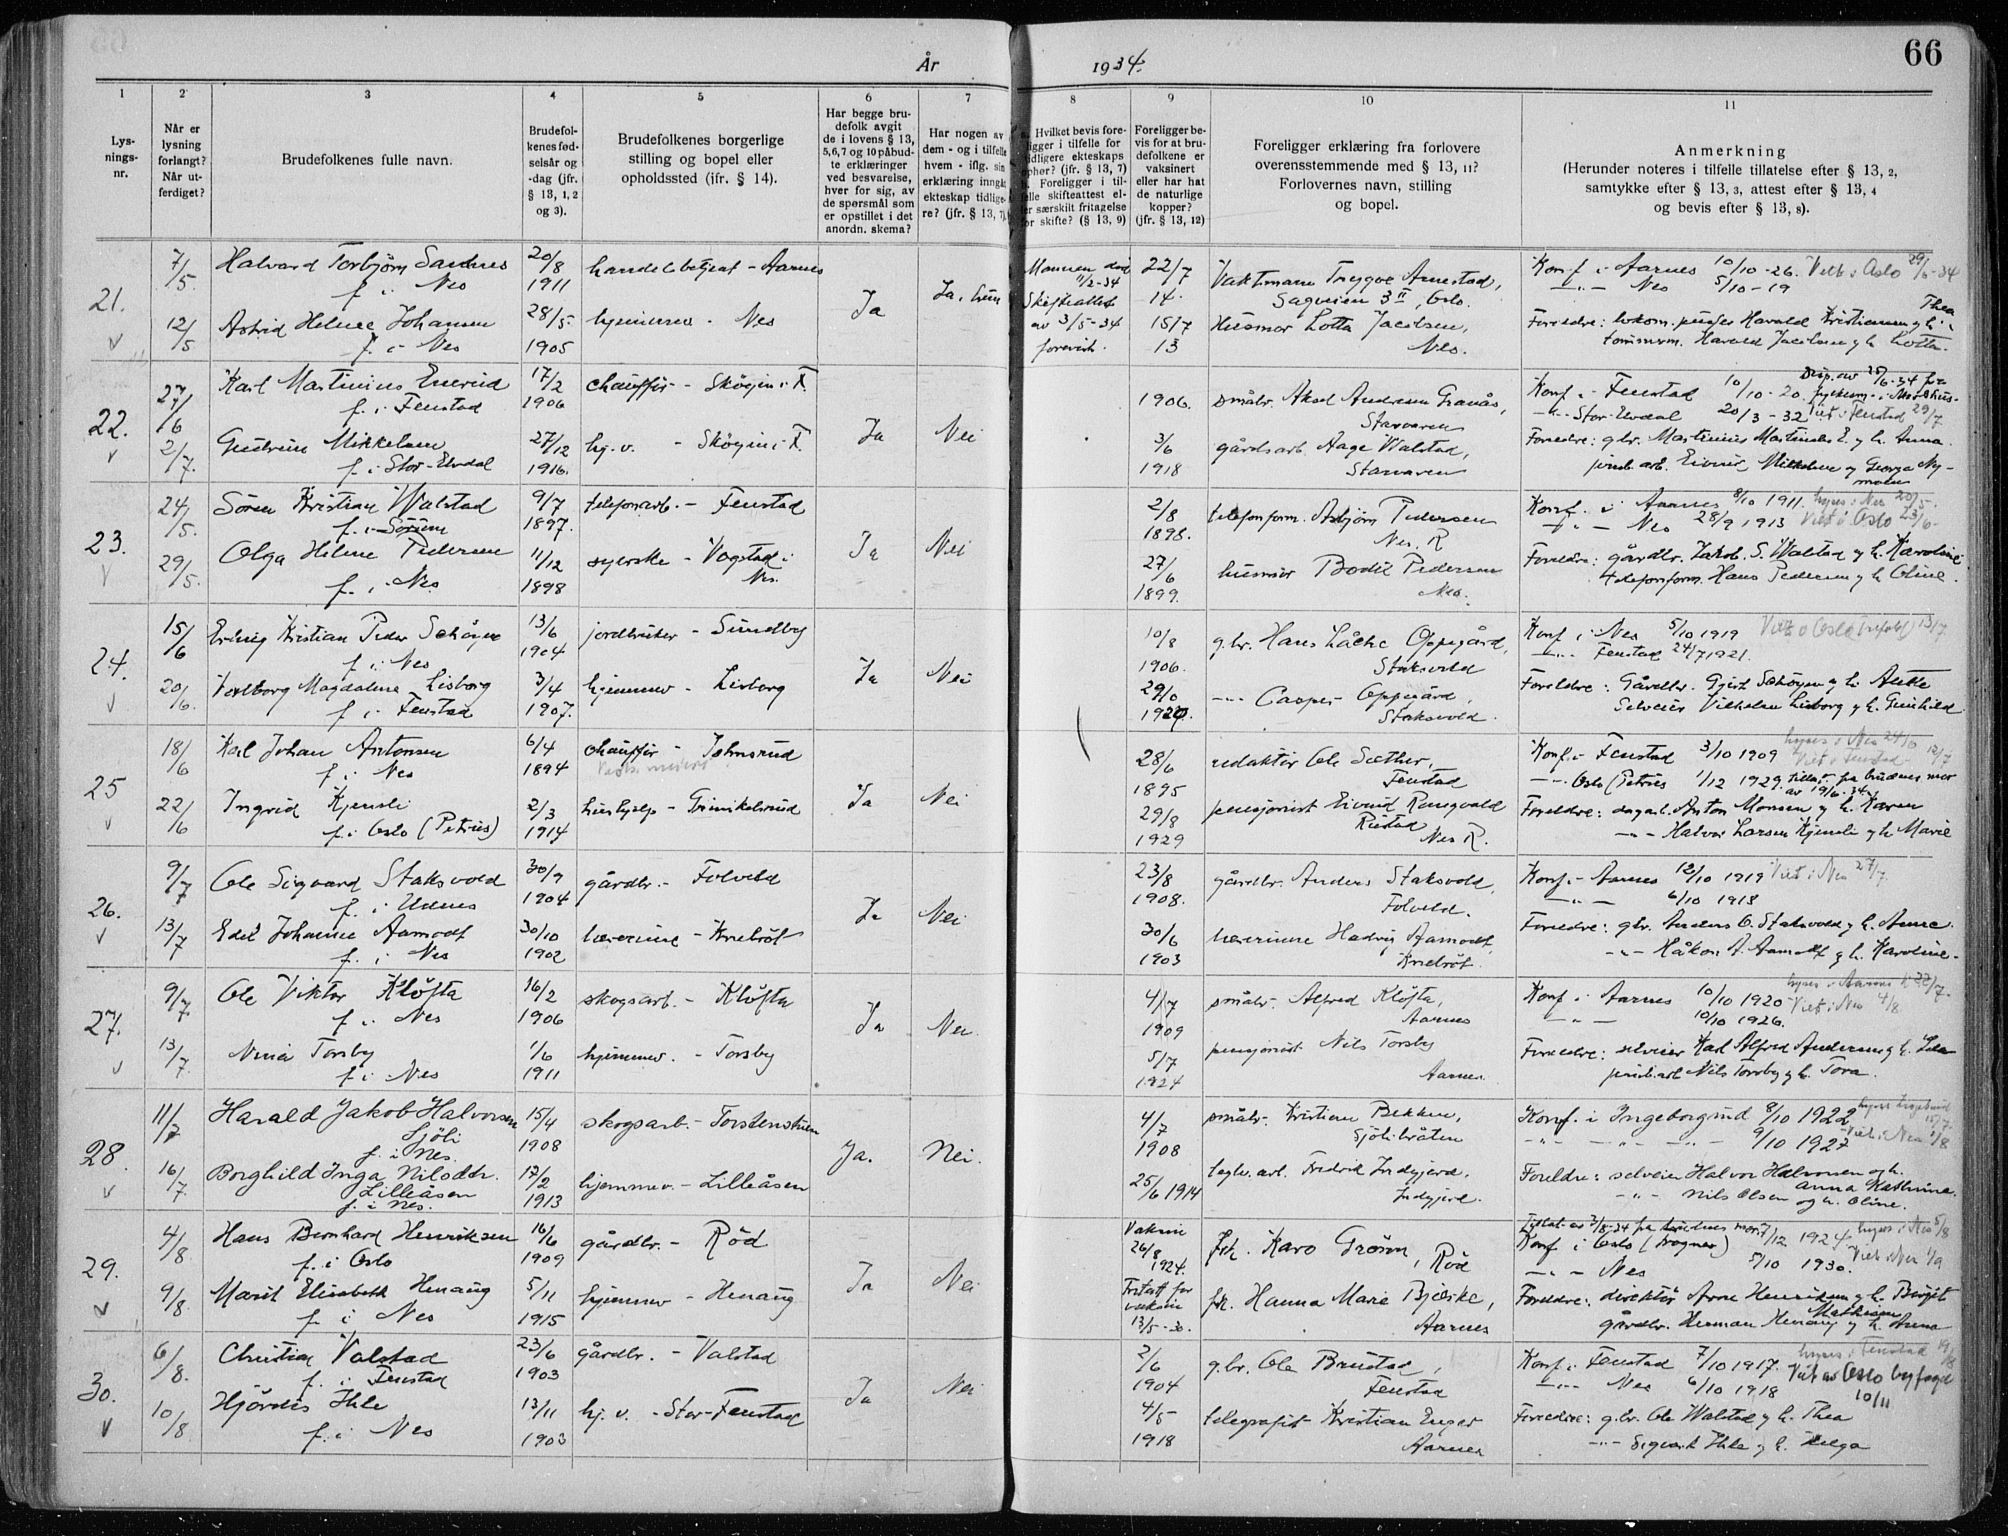 År 1934.
66
1 2 3 4 5 6 7 8 9 10 11
Lysningsnr.
Når er lysning forlangt? Når utferdiget?
Brudefolkenes fulle navn.
Brudefolkenes fødselsår og -dag (jfr. § 13, 1, 2 og 3).
Brudefolkenes borgerlige stilling og bopel eller opholdssted (jfr. § 14).
Har begge brudefolk avgit de i lovens § 13, 5,6,7 og 10 påbudte erklæringer ved besvarelse, hver for sig, av de spørsmål som er opstillet i det anordn. skema?
Har nogen av dem - og i tilfelle hvem - iflg. sin erklæring inngått ekteskap tidligere? (jfr. § 13, 7).
Foreligger bevis for at brudefolkene er vaksinert eller har hat de naturlige kopper? (jfr. § 13, 12)
Foreligger erklæring fra forlovere overensstemmende med § 13, 11? Forlovernes navn, stilling og bopel.
Anmerkning
(Herunder noteres i tilfelle tillatelse efter § 13, 2, samtykke efter § 13, 3, attest efter § 13, 4 og bevis efter § 13, 8).
21.
7/5. Halvard Torbjørn Sandnes 20/8 handelsbetjent - Aarnes
f. i. Nes 1911 Ja
12/5 Astrid Helene Johansen 28/5. hjemmev. - Nes
f. i Nes 1905
Mannen død 11/2-34
Skifteattest
av 3/5-34
forevist.
22/7 14. Vaktmann Trygve Arnestad,
Sagveien 3 II, Oslo.
15/7 13 Husmor Lotta Jacobsen,
Nes.
Konf i Aarnes 10/10-26. Viet i Oslo 29/6-34
-"- Nes 5/10-19
Foreldre: lokom. pusser Harald Kristiansen og h. Thea
tømmerm. Harald Jacobsen og h. Lotta.
22.
27/6 Karl Martinius Enerud 17/2 chauffør - Skøgin i F.
f. i Fenstad 1906 Ja Nei
2/7. Gudrun Mikkelsen 27/12 hj. v. - Skøgin i F.
f. i Stor-Elvdal 1916.
1906. småbr. Aksel Andersen Granås,
3/6 1918 gårdsarb. Aage Walstad,
Konf. i Fenstad 10/10-20.
-"- Stor-Elvdal 20/3-32 Viet i Fenstad 29/7.
Foreldre: gbr. Martinius Martinsen E. og h. Anna.
23.
24/5. Søren Kristian Walstad 9/7 telefonarb. - Fenstad
f. i Sørum 1897. Ja Nei
29/5. Olga Helene Pedersen 11/12 syerske - Vogstad i
f. i Nes 1898 Nes.
2/8 1898. telefonform. Asbjørn Pedersen
Nes. R
27/6 1899. husmor Bodil Pedersen
Nes.
Konf. i Aarnes 8/10 1911. lyses i Nes 20/5.
-"- Nes 28/9 1913 Viet i Oslo 23/6-
Foreldre: gårdbr. Jakob S. Walstad og h. Karoline
telefonform. Hans Pedersen og h. Oline.
24.
15/6 Erling Kristian Peder Schøyen 13/6 jordbruker - Sundby
f. i. Nes 1904 Ja Nei
20/6. Valborg Magdalene Lisborg 3/4 hjemmev - Lisborg
f. i Fenstad 1907.
10/8 1906. g.br. Hans Låche Oppegård,
Staksvold
-"- Casper Oppegård,
Staksvold.
Konf i Nes 5/10 1919 Viet i Oslo 13/7.
-"- Fenstad 24/7 1921.
Foreldre: Gårdbr. Gjert Schøyen og h. Anette
Selveier Vilhelm Lisborg og h. Gunhild
25
18/6 Karl Johan Antonsen 6/4 chauffør - Johnsrud
f. i Nes 1894 Ja Nei
22/6 Ingrid Kjensli 2/3 hushjelp - Frinikelsrud
f. i Oslo (Petrus) 1914
28/6 1895 redaktør Ole Sæther,
Fenstad
29/8 1929 pensjonist Eivind Rangvald
Rustad
Nes R.
Konf. i Fenstad 3/10 1909 Viet i Fenstad
-"- Oslo (Petrus 1/12 1929. tillat. fra brudens mor
av 19/6-34.
Foreldre: dagarb. Anton Monsen og h. Karen
-"- Halvor Larsen Kjensli og h Marie
26.
9/7 Ole Sigvard Staksvold 30/9 gårdbr. - Folveld
f. i Udnes 1904 Ja Nei
13/7 Edit Johanne Aamodt 30/10 lærerinne - Knebröt
f. i Nes 1902
23/8 1908. gårdbr. Anders Staksvold,
Folveld.
30/6 1903 lærerinne Hedvig Aamodt,
Knebröt.
Konf. i Aarnes 12/10 1919 Viet i Nes 27/7.
-"- 6/10 1918
Foreldre: gbr. Anders O. Staksvold og h. Anne
-"- Håkon A. Aamodt og h. Karoline.
27.
9/7. Ole Viktor Kløfta 16/2 skogsarb. - Kløfta
f. i. Nes 1906 Ja Nei
13/7. Ninia Torsby 1/6 hjemmev. - Torsby
f. i Nes 1911
4/7 1909 småbr. Alfred Kløfta,
Aarnes
5/7 1924 pensjonist Nils Torsby
Aarnes.
Konf i Aarnes 10/10 1920 Viet i Nes 4/8.
-"- 10/10 1926.
Foreldre: selveier Karl Alfred Andersen og h.
Nils Torsby og h. Tora.
28.
11/7 Harald Jakob Halvorsen 15/4 skogsarb. - Torstenstuen
Sjöli
f. i Nes. 1908 Ja. Nei.
16/7 Borghild Inga Nilsdtr. 17/2 hjemmev - Lilleåsen
Lilleåsen
f. i Nes. 1913
4/7 1908 småbr. Kristian Bekken,
Sjölibråten
25/6 1914 teglv. arb. Fredrik Indgjerd,
Indgjerd.
Konf. i Ingeborgrud 8/10 1922
-"- 9/10 1927 Viet i Nes
Foreldre: selveier Halvor Halvorsen og h.
Anna Kathrine.
-"- Nils Olsen og h. Oline.
29.
4/8 Hans Bernhard Henriksen 16/6 gårdbr. - Röd
f. i Oslo 1909 Ja Nei
9/8 Marit Elisabeth Henaug 5/11 hjemmev - Henaug
f. i Nes 1915
Vaksin 26/8 1924. frk. Karo Grönn, Röd
Fritatt for vaksine 13/5-30. frk. Hanna Marie Bjerke,
Aarnes
Tillat. av 2/8-34 fra brudens mor. lyses i Nes 5/8
Konf i Oslo (Frogner) 7/12 1924 Viet i Nes 1/9
-"- Nes 5/10 1930.
Foreldre: direktør Arne Henriksen og h. Birgit
Mathiesen
gårdbr. Herman Henaug og h. Anna
30.
6/8. Christian Valstad 23/6 gårdbr. - Valstad
f. i Fenstad 1903 Ja Nei
10/8 Hjördis Ihle 13/11 hj. v. - Stor-Fenstad
f. i Nes 1903
2/6 1904 g.br. Ole Brustad,
Fenstad
4/5 1918 telegrafist Kristian Enger
Aarnes
Konf. i Fenstad 7/10 1917. lyses i Fenstad 19/8
-"- Nes 6/10 1918 Viet av Oslo byfogd
10/11
Foreldre: g.br. Ole Walstad og h. Thea
-"- Sigvart Ihle og h. Helga